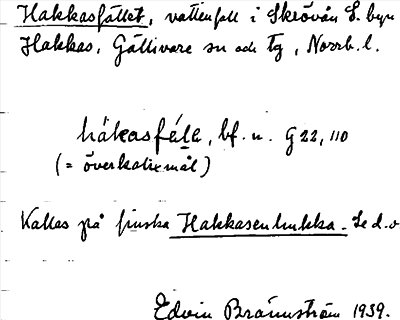 Hakkasfället, vattenfall i Skrövån S. byn
Hakkas, Gällivare sn och tg, Norrb. l.
håkasfälę, bf. n. G 22, 110
(= överkalixmål)
Kallas på finska Hakkasenkukka. Se d.o
Edvin Brännström 1939.